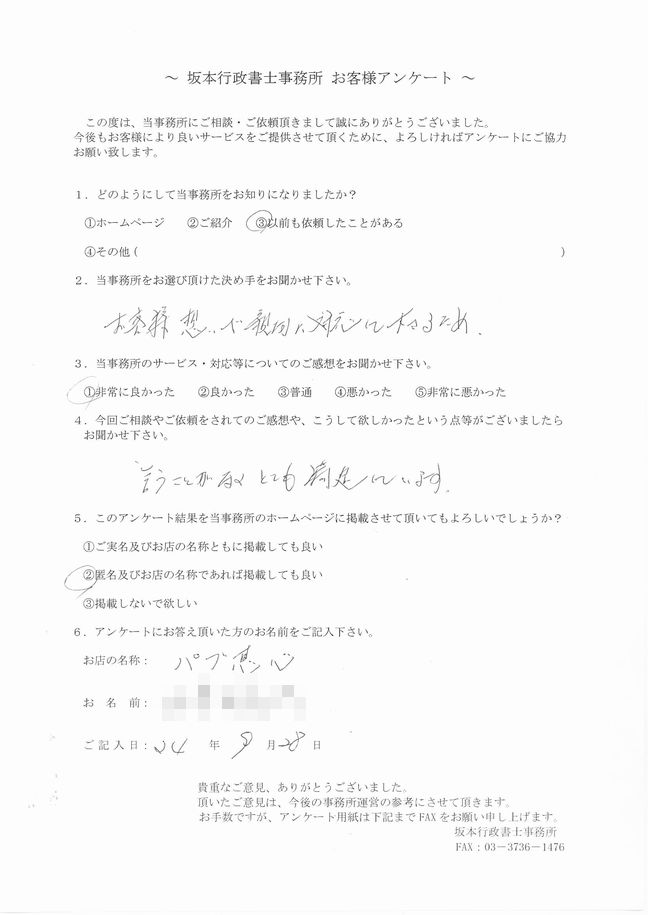 ～ 坂本行政書士事務所 お客様アンケート ～
この度は、当事務所にご相談・ご依頼頂きまして誠にありがとうございました。
今後もお客様により良いサービスをご提供させて頂くために、よろしければアンケートにご協力
お願い致します。
１．どのようにして当事務所をお知りになりましたか？
①ホームページ ②ご紹介 ③以前も依頼したことがある
④その他（ ）
２．当事務所をお選び頂けた決め手をお聞かせ下さい。
お客様想いで親切に対応して下さるため．
３．当事務所のサービス・対応等についてのご感想をお聞かせ下さい。
①非常に良かった ②良かった ③普通 ④悪かった ⑤非常に悪かった
４．今回ご相談やご依頼をされてのご感想や、こうして欲しかったという点等がございましたら
お聞かせ下さい。
言うことがなくとても満足しています．
５．このアンケート結果を当事務所のホームページに掲載させて頂いてもよろしいでしょうか？
①ご実名及びお店の名称ともに掲載しても良い
②匿名及びお店の名称であれば掲載しても良い
③掲載しないで欲しい
６．アンケートにお答え頂いた方のお名前をご記入下さい。
お店の名称： パブ 心
お 名 前：
ご記入日： 24 年 9 月 28 日
貴重なご意見、ありがとうございました。
頂いたご意見は、今後の事務所運営の参考にさせて頂きます。
お手数ですが、アンケート用紙は下記まで FAX をお願い申し上げます。
坂本行政書士事務所
FAX：03－3736－1476